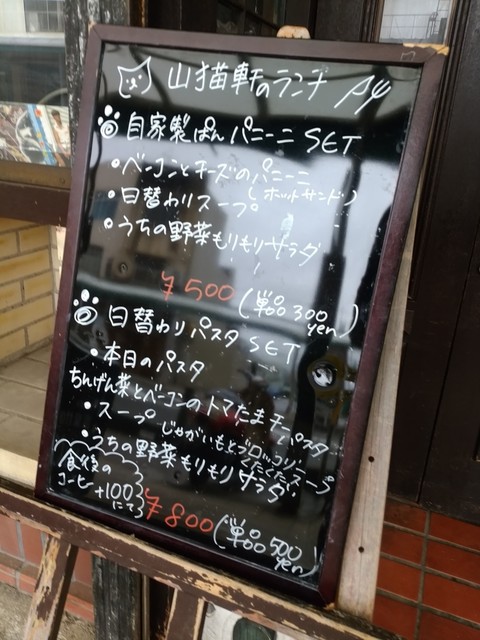 山猫軒のランチ
自家製ぱんパニーニ SET
・ベーコンとチーズのパニーニ
(ホットサンド)
・日替わりスープ
・うちの野菜もりもりサラダ
¥500 (単品300yen)
日替わりパスタ SET
・本日のパスタ
ちんげん菜とベーコンのトマたまチーパスタ
・スープ じゃがいもとブロッコリーくたくたスープ
・うちの野菜もりもりサラダ
¥800 (単品500yen)
食後の
コーヒー +100
にて